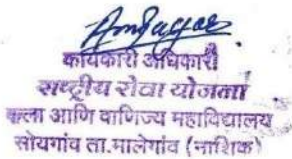 कार्यकारी अधिकारी
राष्ट्रीय सेवा योजना
कला आणि वाणिज्य महाविद्यालय
सोयगांव ता.मालेगांव (नाशिक)